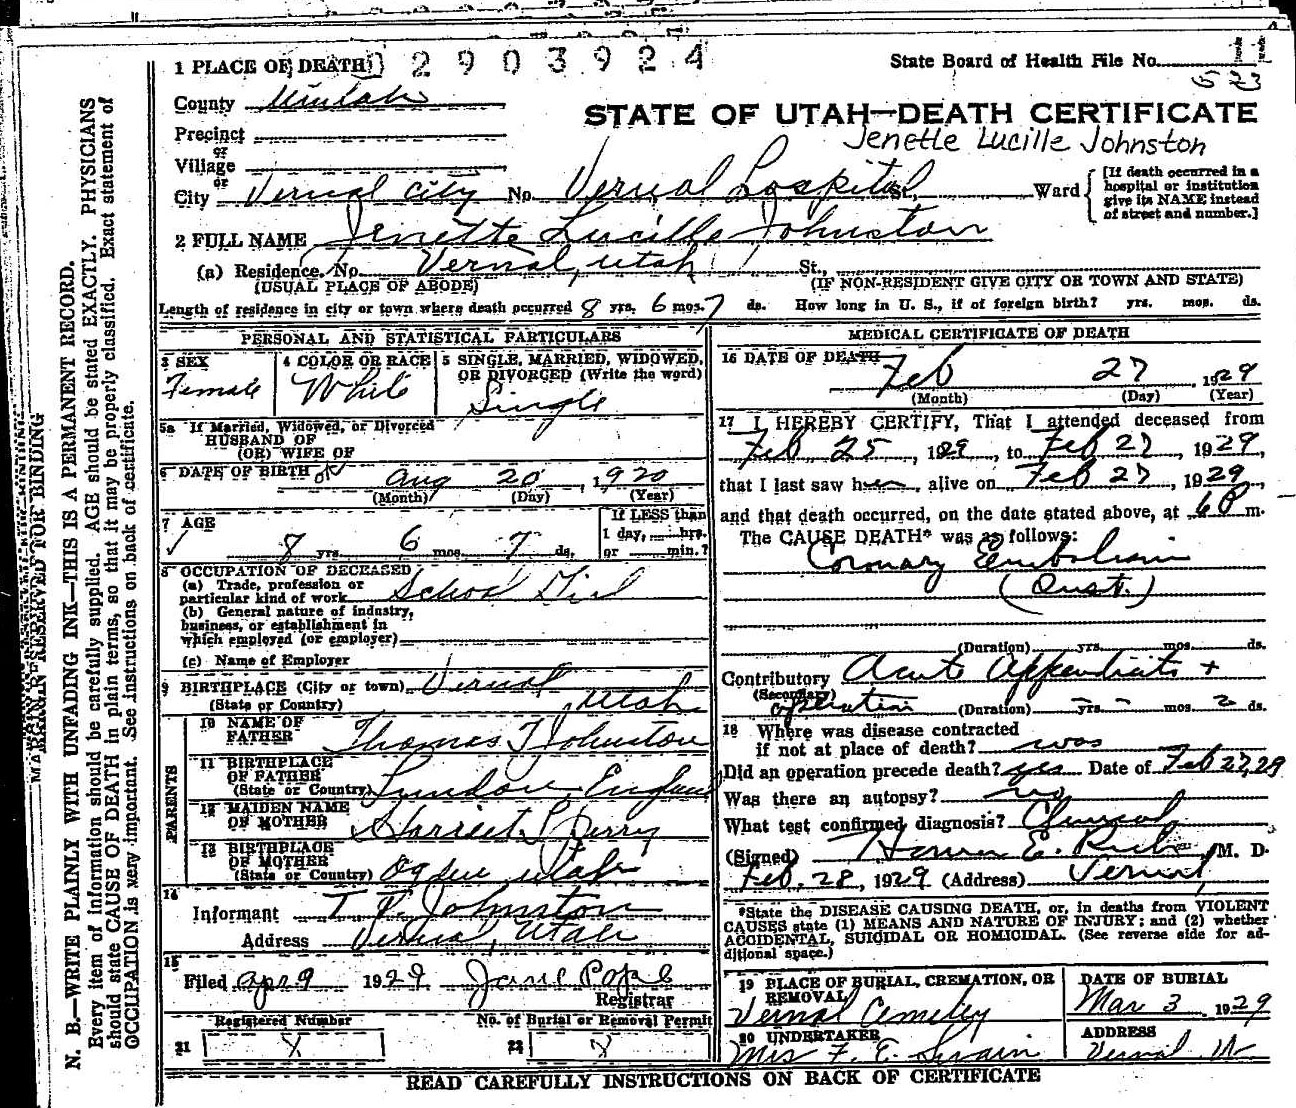 1 PLACE OF DEATH
2903924
State Board of Health File No. 11
523
County Uintah
STATE OF UTAH—DEATH CERTIFICATE
Precinct
Jenette Lucille Johnston
or
Village
or
City Vernal City No. Vernal Hospital St., Ward
[If death occurred in a hospital or institution give its NAME instead of street and number.]
2 FULL NAME Jenette Lucille Johnston
(a) Residence. No. Vernal, Utah St.,
(USUAL PLACE OF ABODE) (IF NON-RESIDENT GIVE CITY OR TOWN AND STATE)
Length of residence in city or town where death occurred 8 yrs. 6 mos. 7 ds. How long in U. S., if of foreign birth? yrs. mos. ds.
PERSONAL AND STATISTICAL PARTICULARS
3 SEX
Female
4 COLOR OR RACE
White
5 SINGLE, MARRIED, WIDOWED,
OR DIVORCED (Write the word)
Single
5a If Married, Widowed, or Divorced
HUSBAND OF
(OR) WIFE OF
6 DATE OF BIRTH ok Aug 20, 1920
(Month) (Day) (Year)
7 AGE
8 yrs. 6 mos. 7 ds.
If LESS than
1 day, hrs.
or min.?
8 OCCUPATION OF DECEASED
(a) Trade, profession or
particular kind of work School Girl
(b) General nature of industry,
business, or establishment in
which employed (or employer)
(c) Name of Employer
9 BIRTHPLACE (City or town) Vernal
(State or Country) Utah
PARENTS
10 NAME OF
FATHER Thomas T Johnston
11 BIRTHPLACE
OF FATHER
(State or Country) London, England
12 MAIDEN NAME
OF MOTHER Harriet Perry
13 BIRTHPLACE
OF MOTHER
(State or Country) Ogden Utah
14
Informant T. T. Johnston
Address Vernal, Utah
15
Filed Apr 9 1929 Jane Pope
Registrar
Registered Number No. of Burial or Removal Permit
21 X 22 X
MEDICAL CERTIFICATE OF DEATH
16 DATE OF DEATH
Feb 27, 1929
(Month) (Day) (Year)
17 I HEREBY CERTIFY, That I attended deceased from
Feb 25, 1929, to Feb 27, 1929,
that I last saw her alive on Feb 27, 1929,
and that death occurred, on the date stated above, at 6 P m.
The CAUSE DEATH* was as follows:
Coronary Embolism
(Duration) yrs. mos. ds.
Contributory Acute Appendicitis +
(Secondary)
operation (Duration) yrs - mos. 2 ds.
18 Where was disease contracted
if not at place of death? was
Did an operation precede death? yes Date of Feb 27, 29
Was there an autopsy? no
What test confirmed diagnosis? Clinical
(Signed) Homer E. Rich, M. D.
Feb. 28, 1929 (Address) Vernal,
*State the DISEASE CAUSING DEATH, or, in deaths from VIOLENT
CAUSES state (1) MEANS AND NATURE OF INJURY; and (2) whether
ACCIDENTAL, SUICIDAL OR HOMICIDAL. (See reverse side for ad-
ditional space.)
19 PLACE OF BURIAL, CREMATION, OR
REMOVAL
Vernal Cemetery
DATE OF BURIAL
Mar 3, 1929
20 UNDERTAKER
Mrs F. E. Swain
ADDRESS
Vernal, Ut
READ CAREFULLY INSTRUCTIONS ON BACK OF CERTIFICATE
MARGIN RESERVED FOR BINDING
N. B.—WRITE PLAINLY WITH UNFADING INK—THIS IS A PERMANENT RECORD.
Every item of information should be carefully supplied. AGE should be stated EXACTLY. PHYSICIANS
should state CAUSE OF DEATH in plain terms, so that it may be properly classified. Exact statement of
OCCUPATION is very important. See instructions on back of certificate.